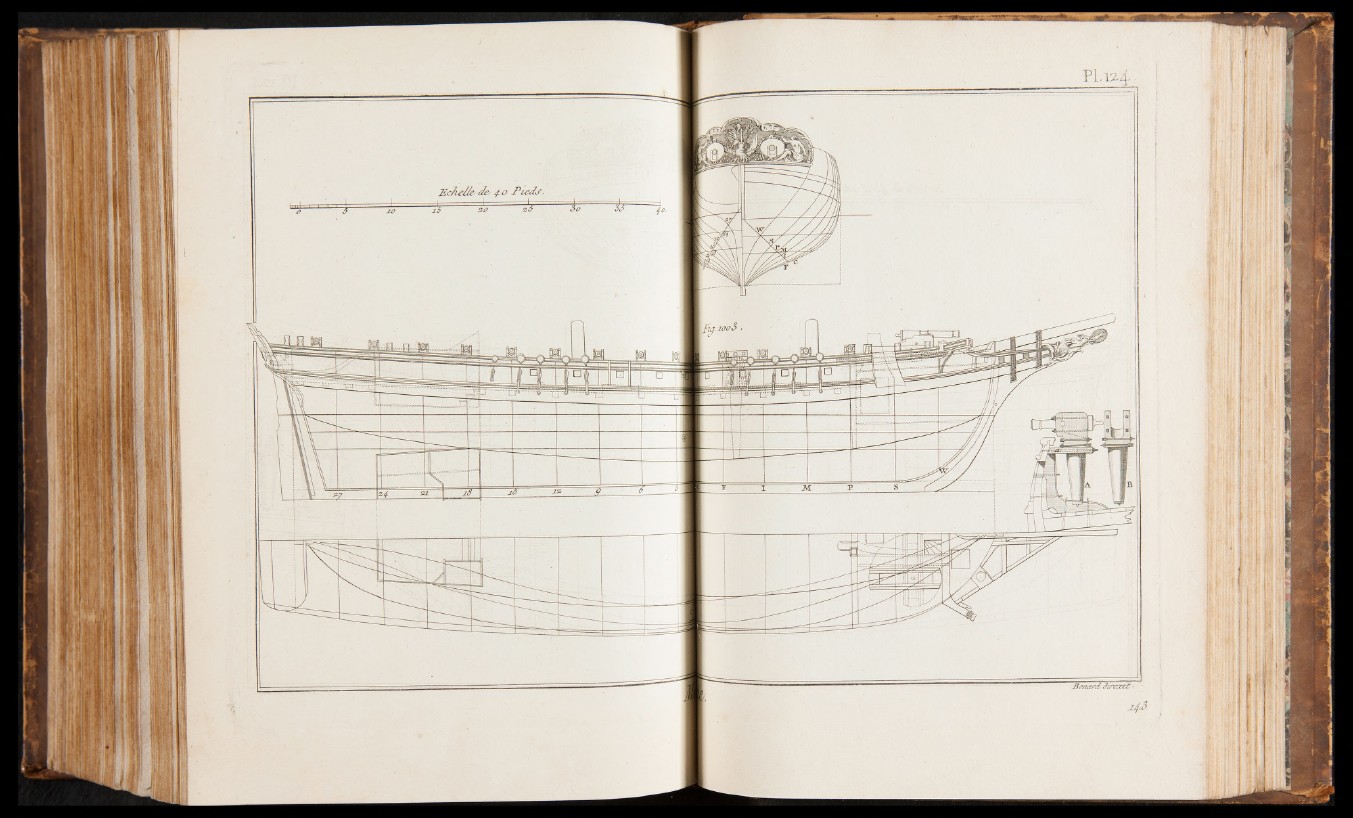 Pl. 124.
Echelle de 40 Pieds.
0 5 10 15 20 25 30 35 40.
W
F
C
fig. 1003.
W
27 24 21 18 15 12 9 6 3 F I M P S
A B
Benard direxit.
143